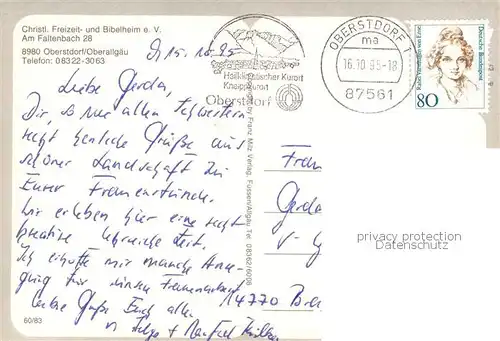 Christl. Freizeit- und Bibelheim e. V.
Am Faltenbach 28
8980 Oberstdorf/Oberallgäu
Telefon: 08322-3063
15.10.95
Liebe Gerda,
Dir, so wie allen Schwestern
recht herzliche Grüße aus
schöner Landschaft zu
Eurer Frauenstunde.
Wir erleben hier eine recht
kreative lehrreiche Zeit.
Ich erhoffe mir manche Anre-
gung für unsere Frauenarbeit
Liebe Grüße Euch allen
+ Manfred
60/83
Heilklimatischer Kurort
Kneippkurort
Oberstdorf
OBERSTDORF 1
ma
16.10.95-18
87561
Deutsche Bundespost
Rahel Varnhagen von Ense
80
by Franz Milz Verlag, Füssen/Allgäu, Tel. 08362/6006
Frau
Gerda
14770 Bra
privacy protection
Datenschutz